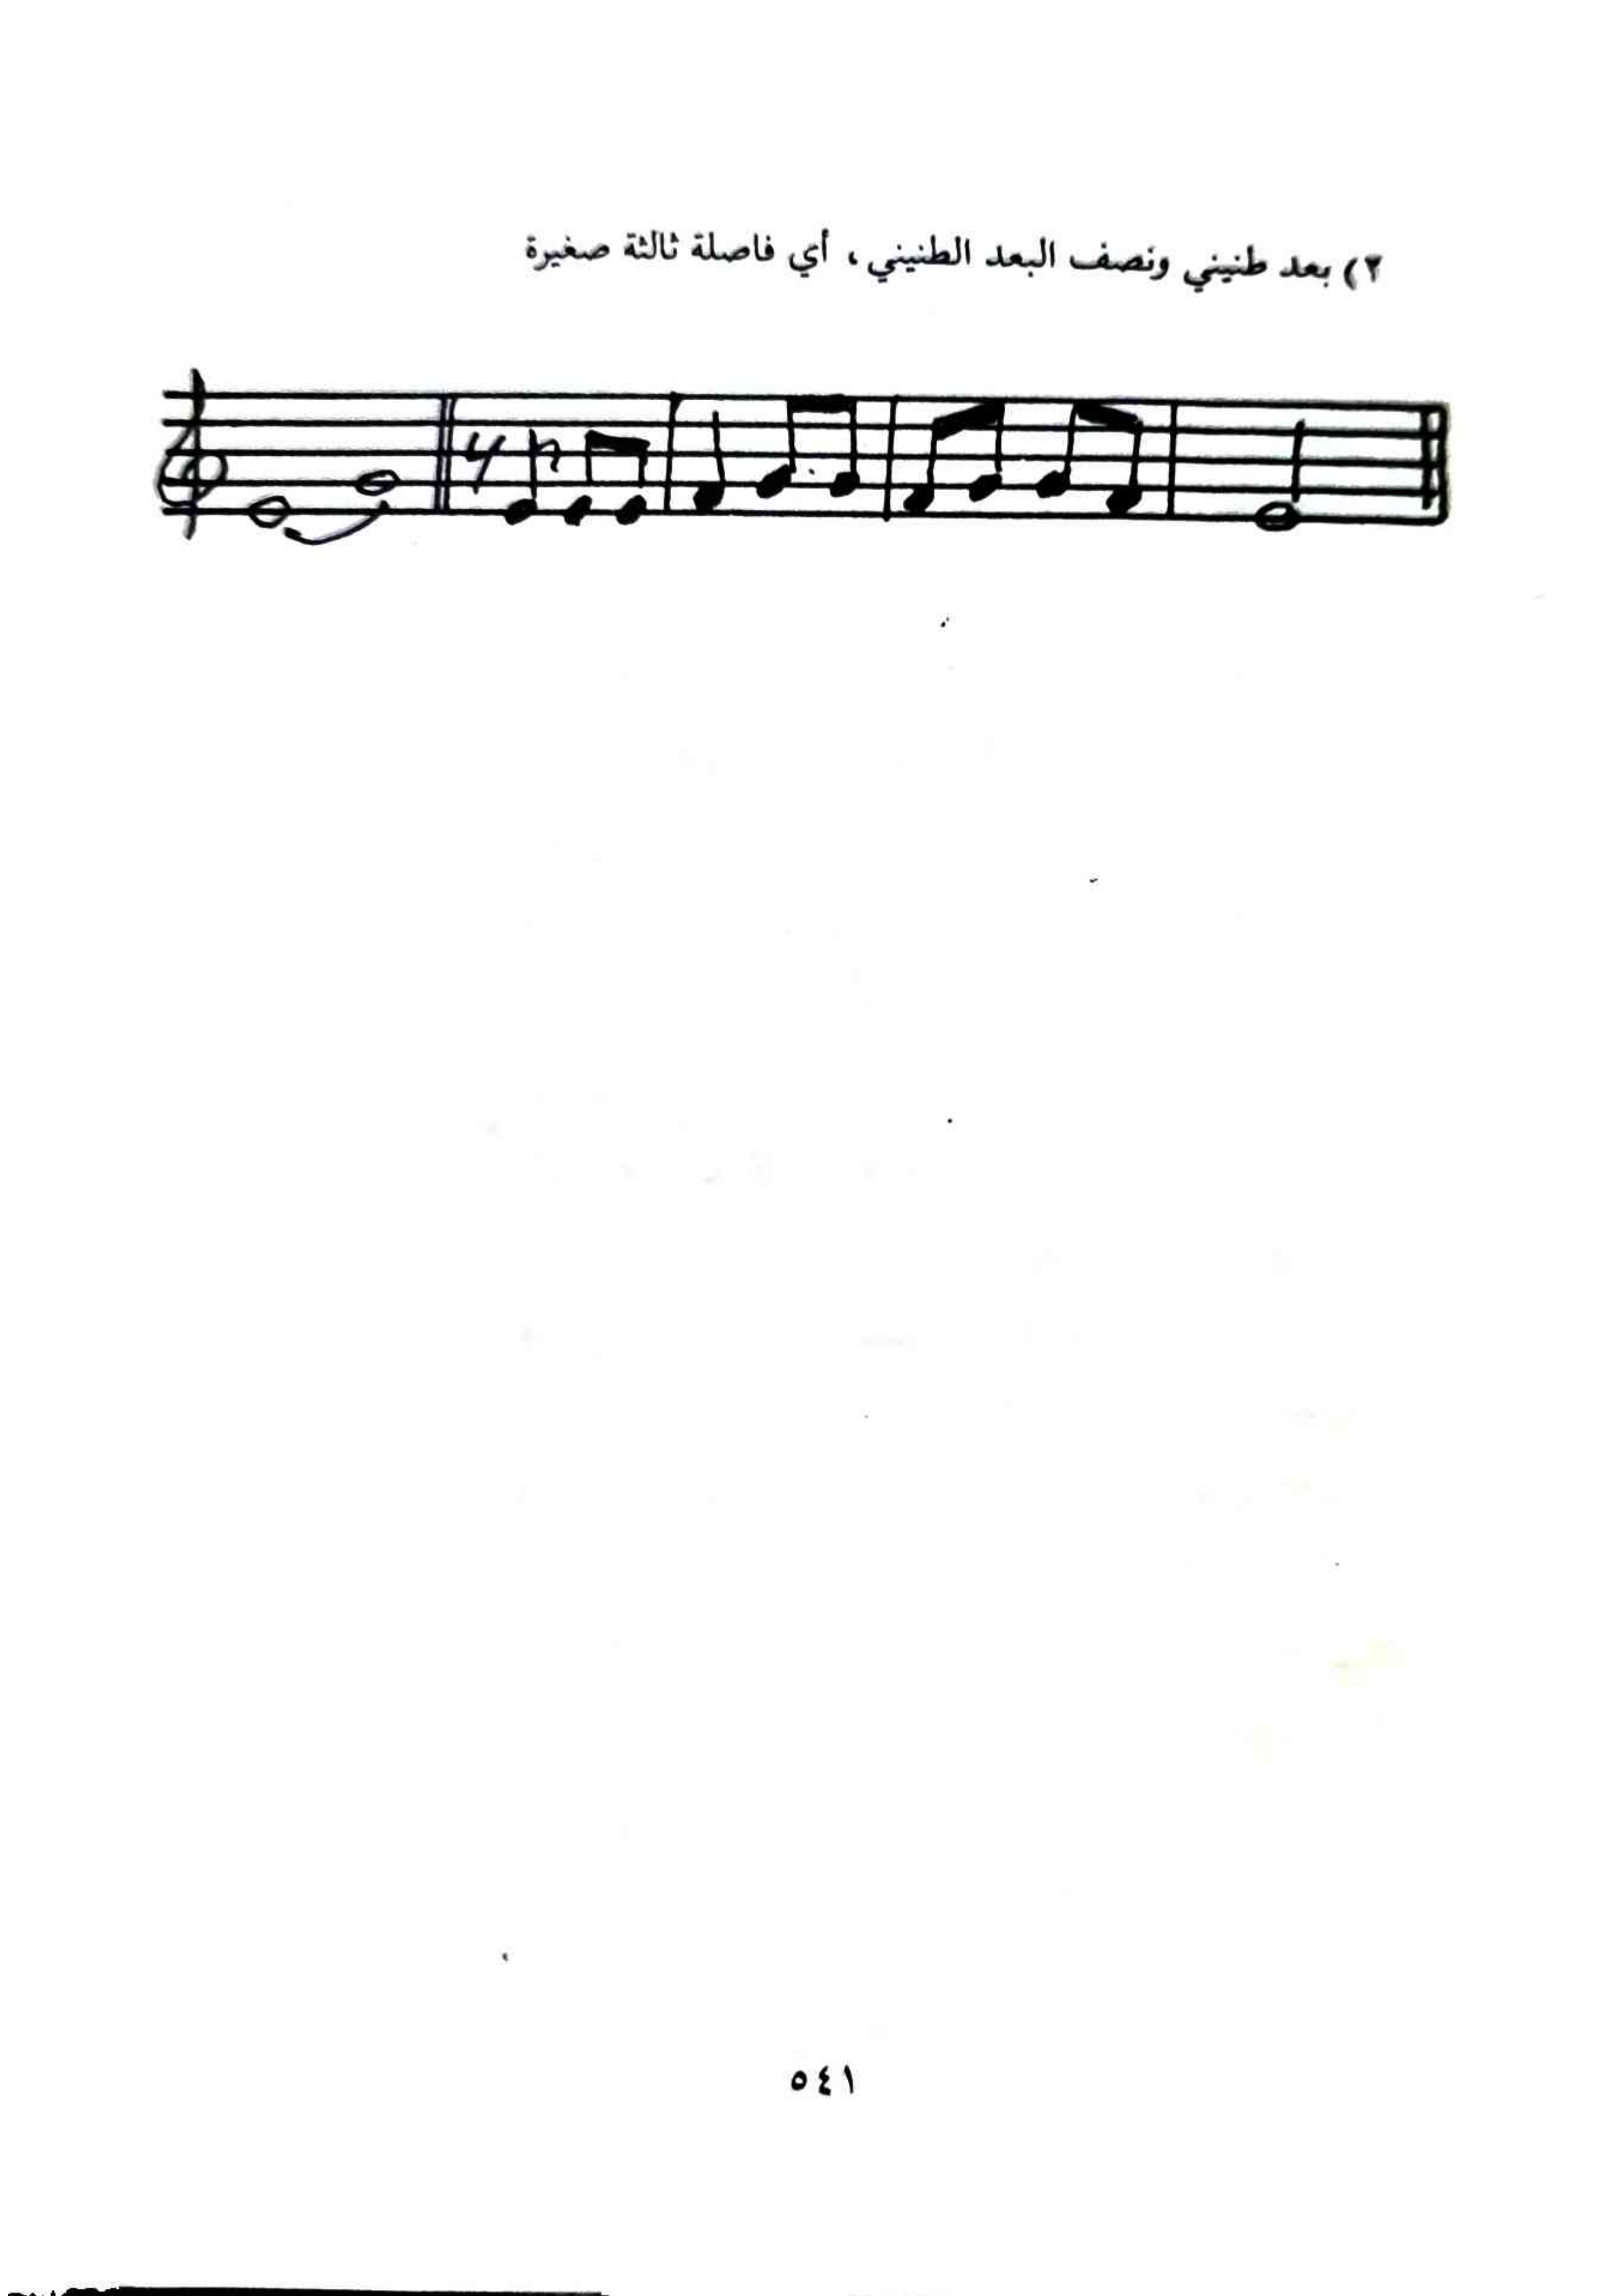 ٢) بعد طنيني ونصف البعد الطنيني ، أي فاصلة ثالثة صغيرة
٥٤١